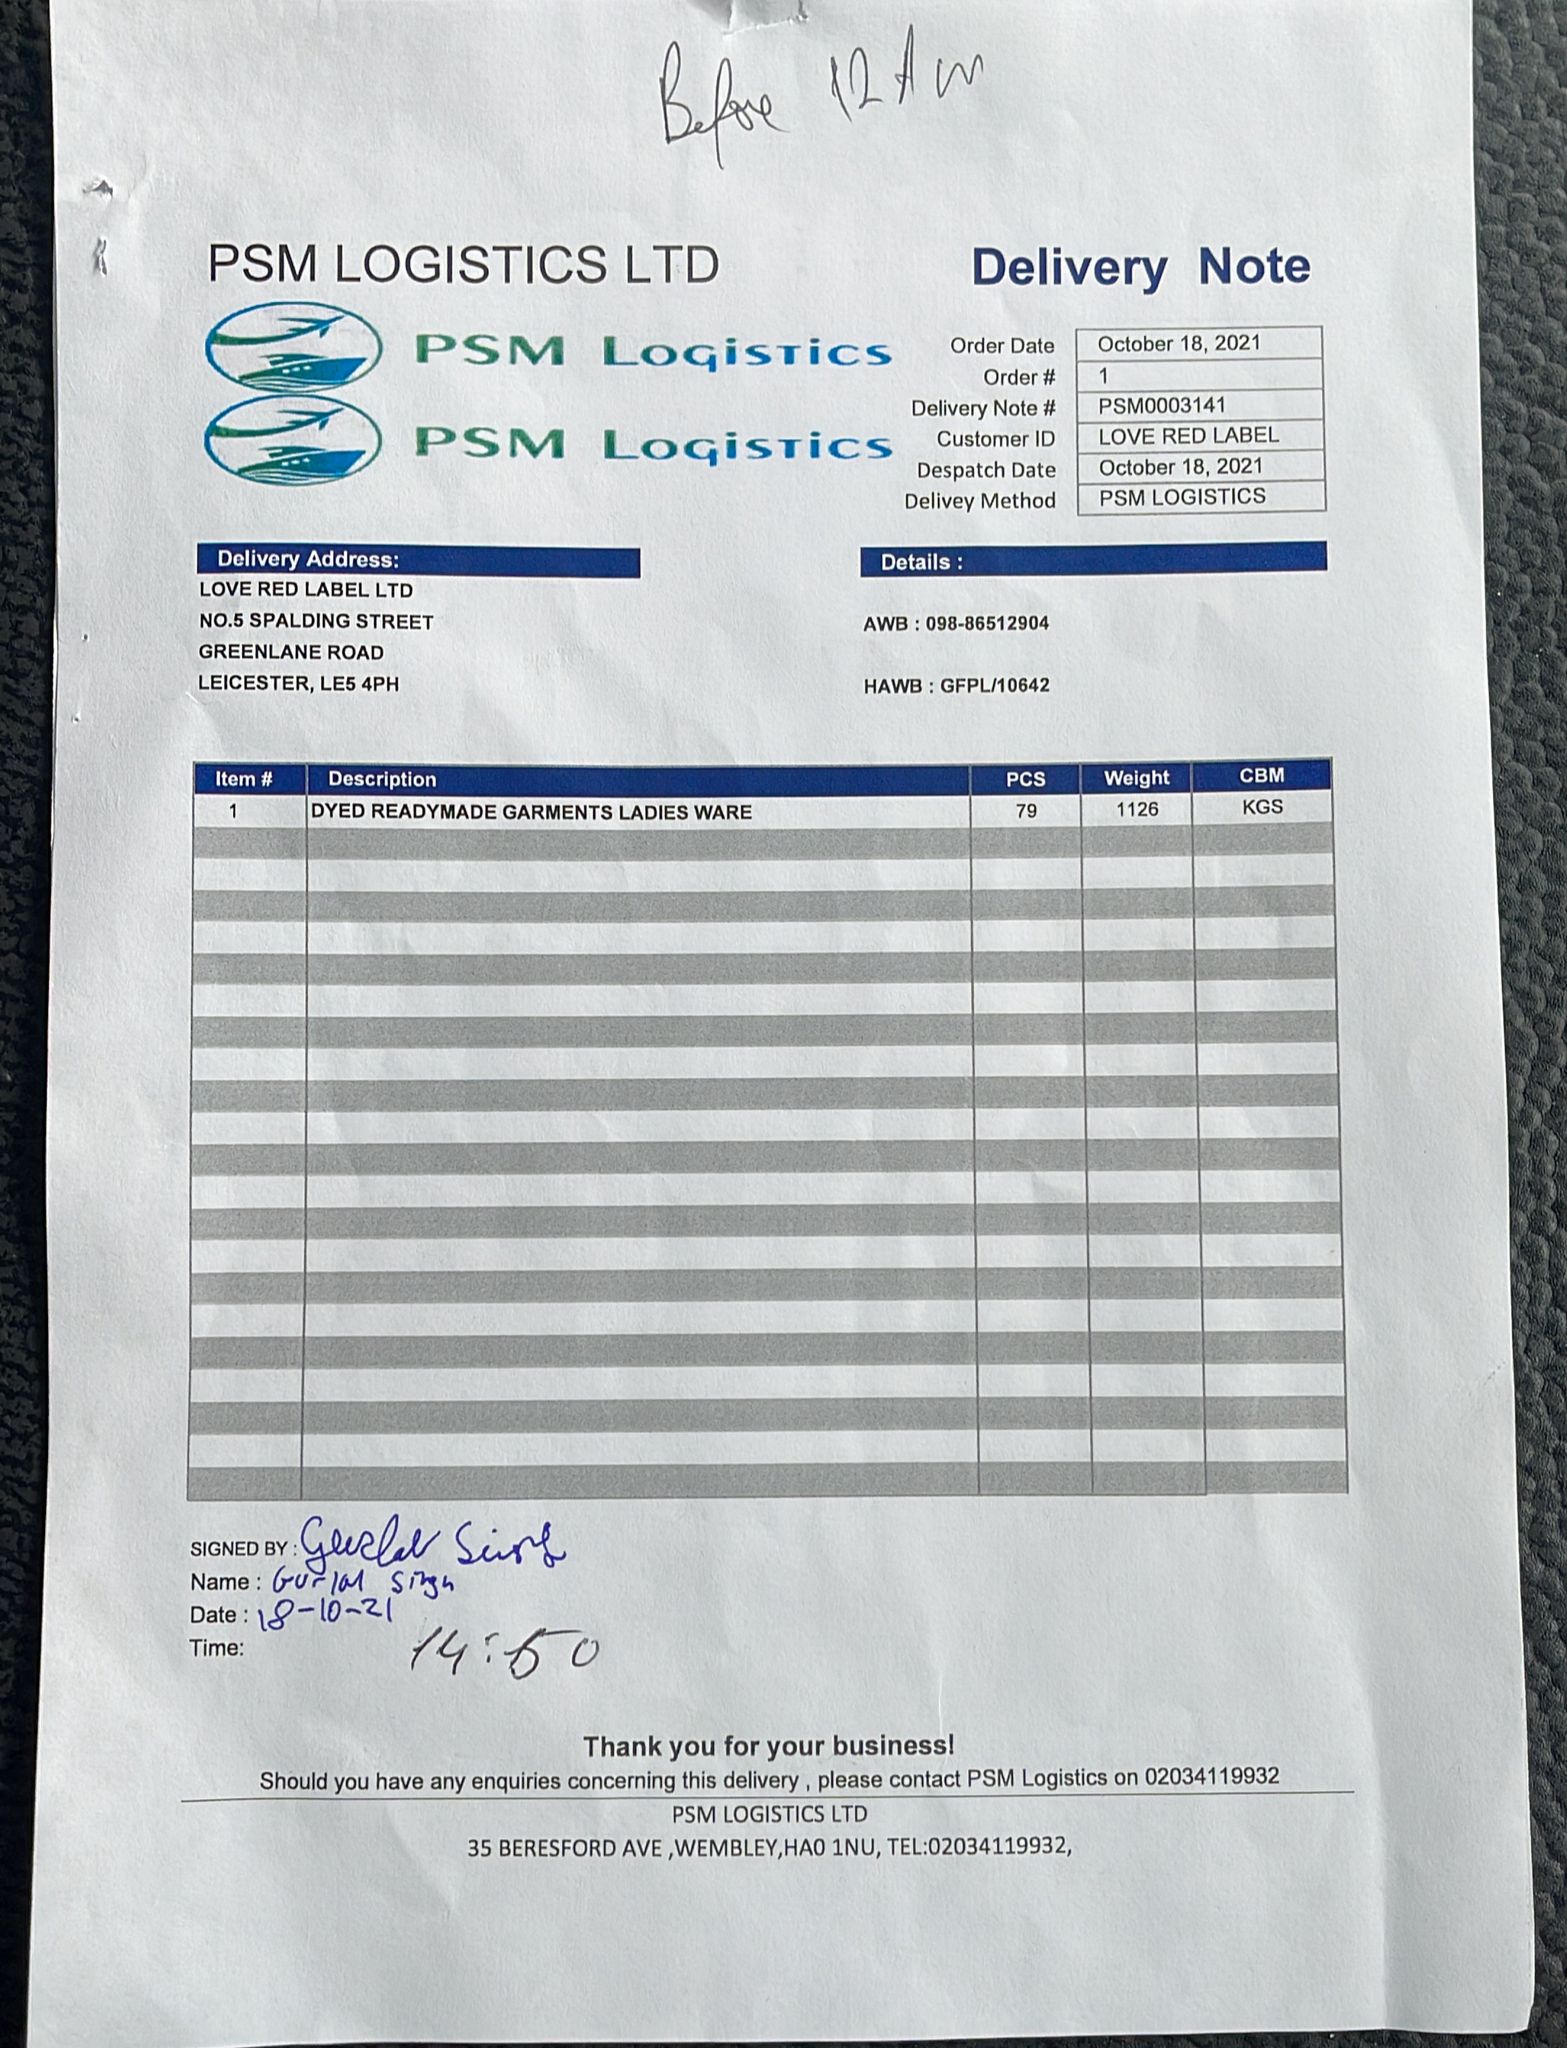 Before 12 Am
PSM LOGISTICS LTD
Delivery Note
PSM Logistics
PSM Logistics
Order Date October 18, 2021
Order # 1
Delivery Note # PSM0003141
Customer ID LOVE RED LABEL
Despatch Date October 18, 2021
Delivey Method PSM LOGISTICS
Delivery Address:
LOVE RED LABEL LTD
NO.5 SPALDING STREET
GREENLANE ROAD
LEICESTER, LE5 4PH
Details :
AWB : 098-86512904
HAWB : GFPL/10642
Item # Description PCS Weight CBM
1 DYED READYMADE GARMENTS LADIES WARE 79 1126 KGS
SIGNED BY :
Name : Gurlal Singh
Date : 18-10-21
Time: 14:50
Thank you for your business!
Should you have any enquiries concerning this delivery , please contact PSM Logistics on 02034119932
PSM LOGISTICS LTD
35 BERESFORD AVE ,WEMBLEY,HA0 1NU, TEL:02034119932,